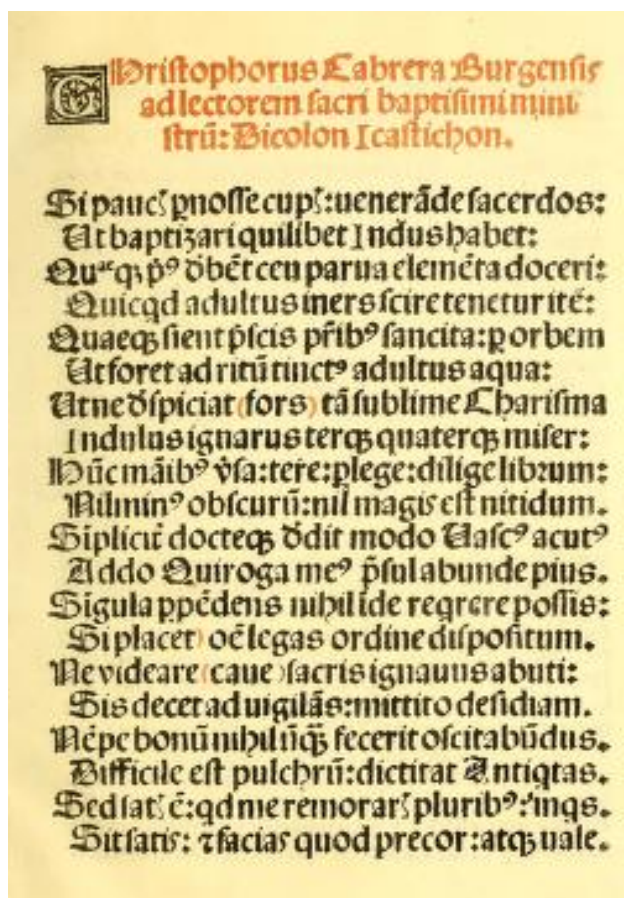 CHristophorus Cabrera Burgensis
ad lectorem sacri baptismi mini
strū: Dicolon Icastichon.
Si paucꝭ p̲nosse cupꝭ: uenerāde sacerdos:
Ut baptizari quilibet Indus habet:
Quaeqꝫ pꝰ dēbēt ceu parua elemēta doceri:
Quicqd adultus iners scire tenetur itē:
Quaeqꝫ sient p̄scis pr̄ibꝰ sancita: ꝑ orbem
Ut foret ad ritū tinctꝰ adultus aqua:
Ut ne d̄spiciat (fors) tā sublime Charisma
Indulus ignarus terqꝫ quaterqꝫ miser:
Hūc māibꝰ v̄sa: tere: ꝑlege: dilige librum:
Nil minꝰ obscurū: nil magis est nitidum.
Siplicit̄ docteqꝫ d̄dit modo Uascꝰ acutꝰ
Addo Quiroga meꝰ p̄sul abunde pius.
Sigula ꝑpēdens nihil ide reqrere possis:
Si placet) oē legas ordine dispositum.
Ne videare (caue) sacris ignauus abuti:
Sis decet aduigilās: mittito desidiam.
Nēpe bonū nihil ūqꝫ fecerit oscitabūdus.
Difficile est pulchrū: dictitat Antiqtas.
Sed satꝭ ē: qd me remorarꝭ pluribꝰ: inqs.
Sit satis: ⁊ facias quod precor: atqꝫ uale.